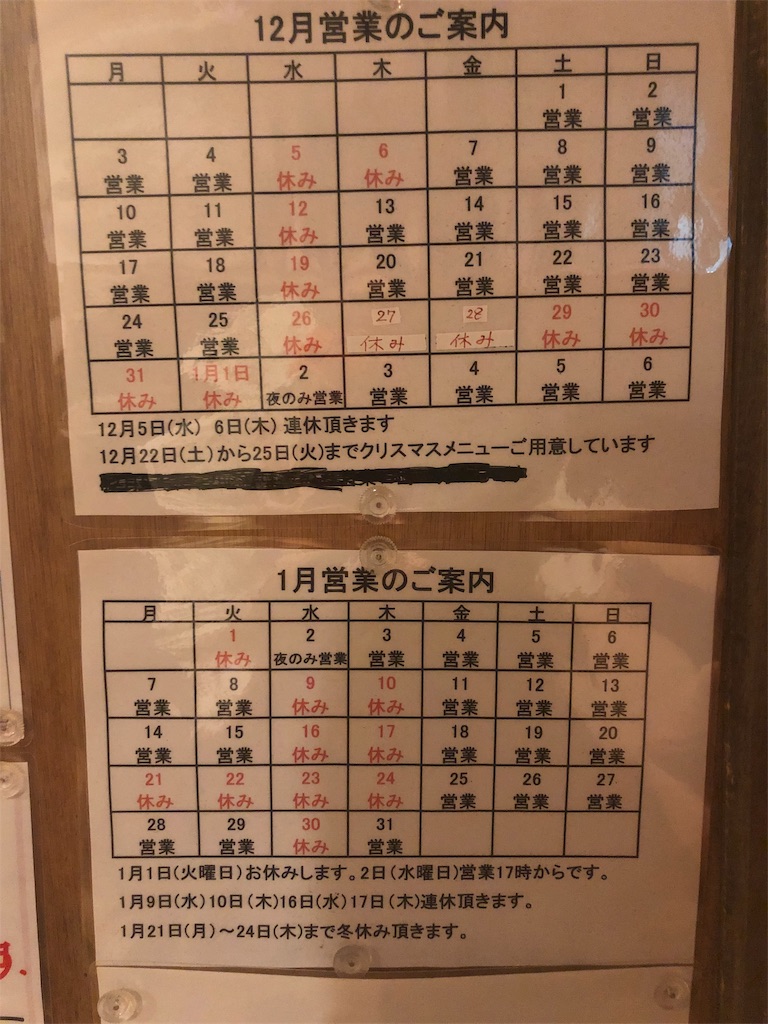 12月営業のご案内
月 火 水 木 金 土 日
1 2
営業 営業
3 4 5 6 7 8 9
営業 営業 休み 休み 営業 営業 営業
10 11 12 13 14 15 16
営業 営業 休み 営業 営業 営業 営業
17 18 19 20 21 22 23
営業 営業 休み 営業 営業 営業 営業
24 25 26 27 28 29 30
営業 営業 休み 休み 休み 休み 休み
31 1月1日 2 3 4 5 6
休み 休み 夜のみ営業 営業 営業 営業 営業
12月5日(水) 6日(木) 連休頂きます
12月22日(土)から25日(火)までクリスマスメニューご用意しています
1月営業のご案内
月 火 水 木 金 土 日
1 2 3 4 5 6
休み 夜のみ営業 営業 営業 営業 営業
7 8 9 10 11 12 13
営業 営業 休み 休み 営業 営業 営業
14 15 16 17 18 19 20
営業 営業 休み 休み 営業 営業 営業
21 22 23 24 25 26 27
休み 休み 休み 休み 営業 営業 営業
28 29 30 31
営業 営業 休み 営業
1月1日(火曜日)お休みします。2日(水曜日)営業17時からです。
1月9日(水)10日(木)16日(水)17日(木)連休頂きます。
1月21日(月)～24日(木)まで冬休み頂きます。